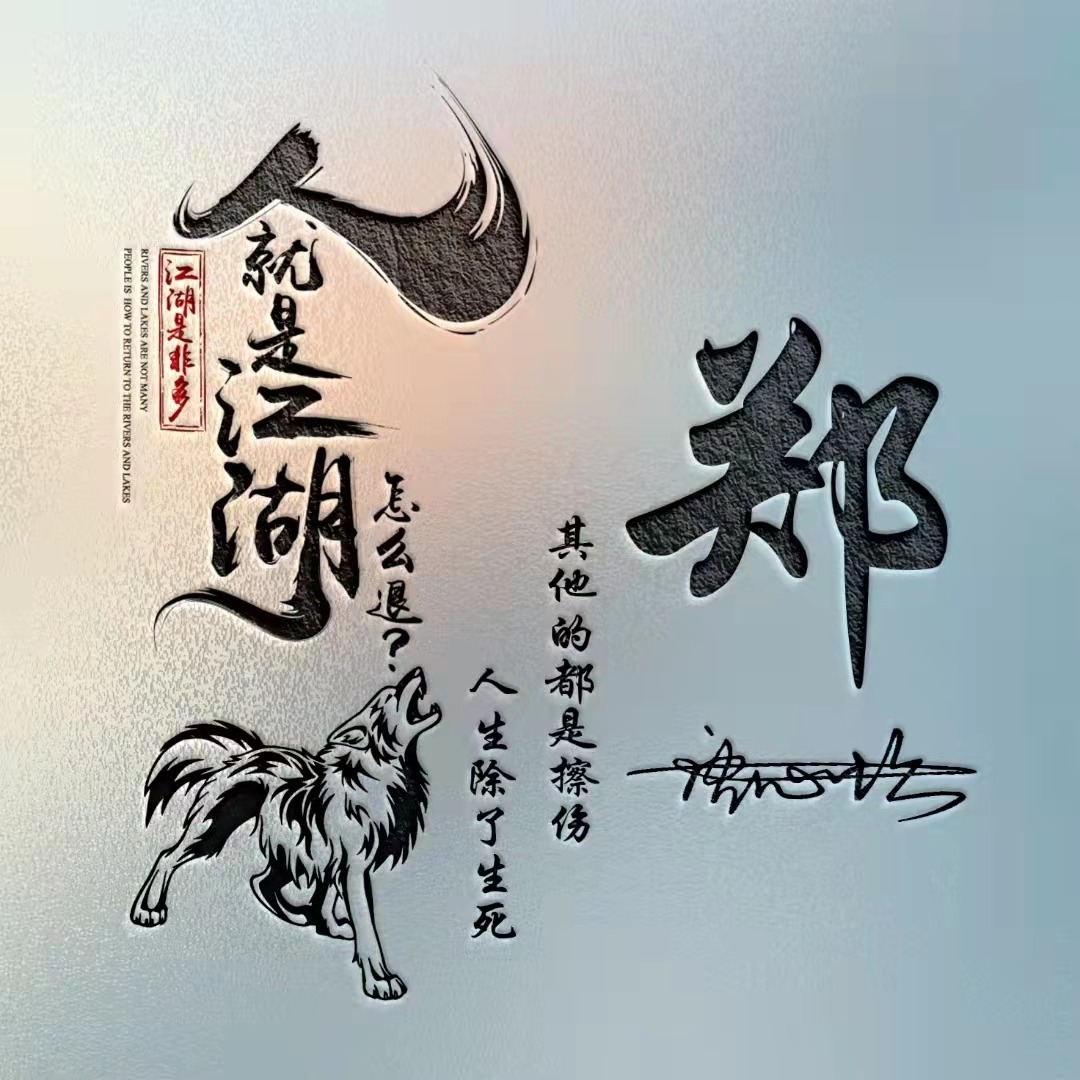 人就是江湖
怎么退?
江湖是非多
RIVERS AND LAKES ARE NOT MANY
PEOPLE IS HOW TO RETURN TO THE RIVERS AND LAKES
人生除了生死
其他的都是擦伤
郑